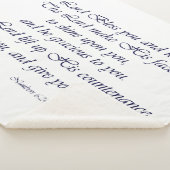 Lord Bless you and
The Lord make His face
to shine upon you,
and be gracious to you
Lord lift up His countenance
you, and give yo
Numbers 6:2